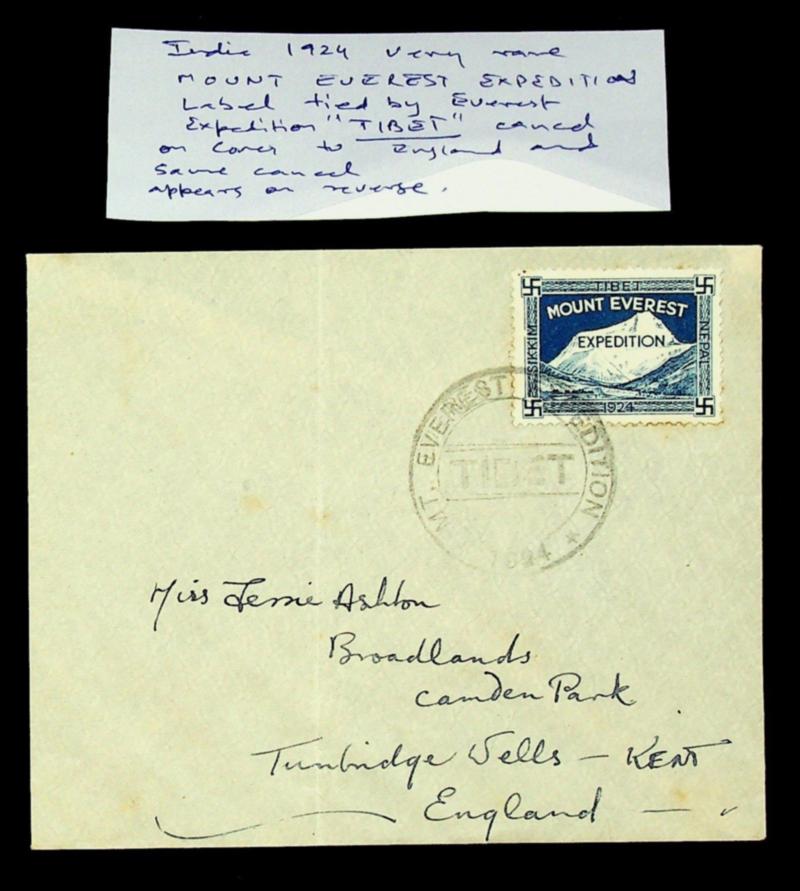 India 1924 very rare
MOUNT EVEREST EXPEDITION
Label tied by Everest
Expedition "TIBET" cancel
on cover to England and
same cancel
appears on reverse.
TIBET
MOUNT EVEREST
EXPEDITION
SIKKIM
NEPAL
1924
MT. EVEREST EXPEDITION
TIBET
1924
Miss Jessie Ashton
Broadlands
Camden Park
Tunbridge Wells – KENT
England –